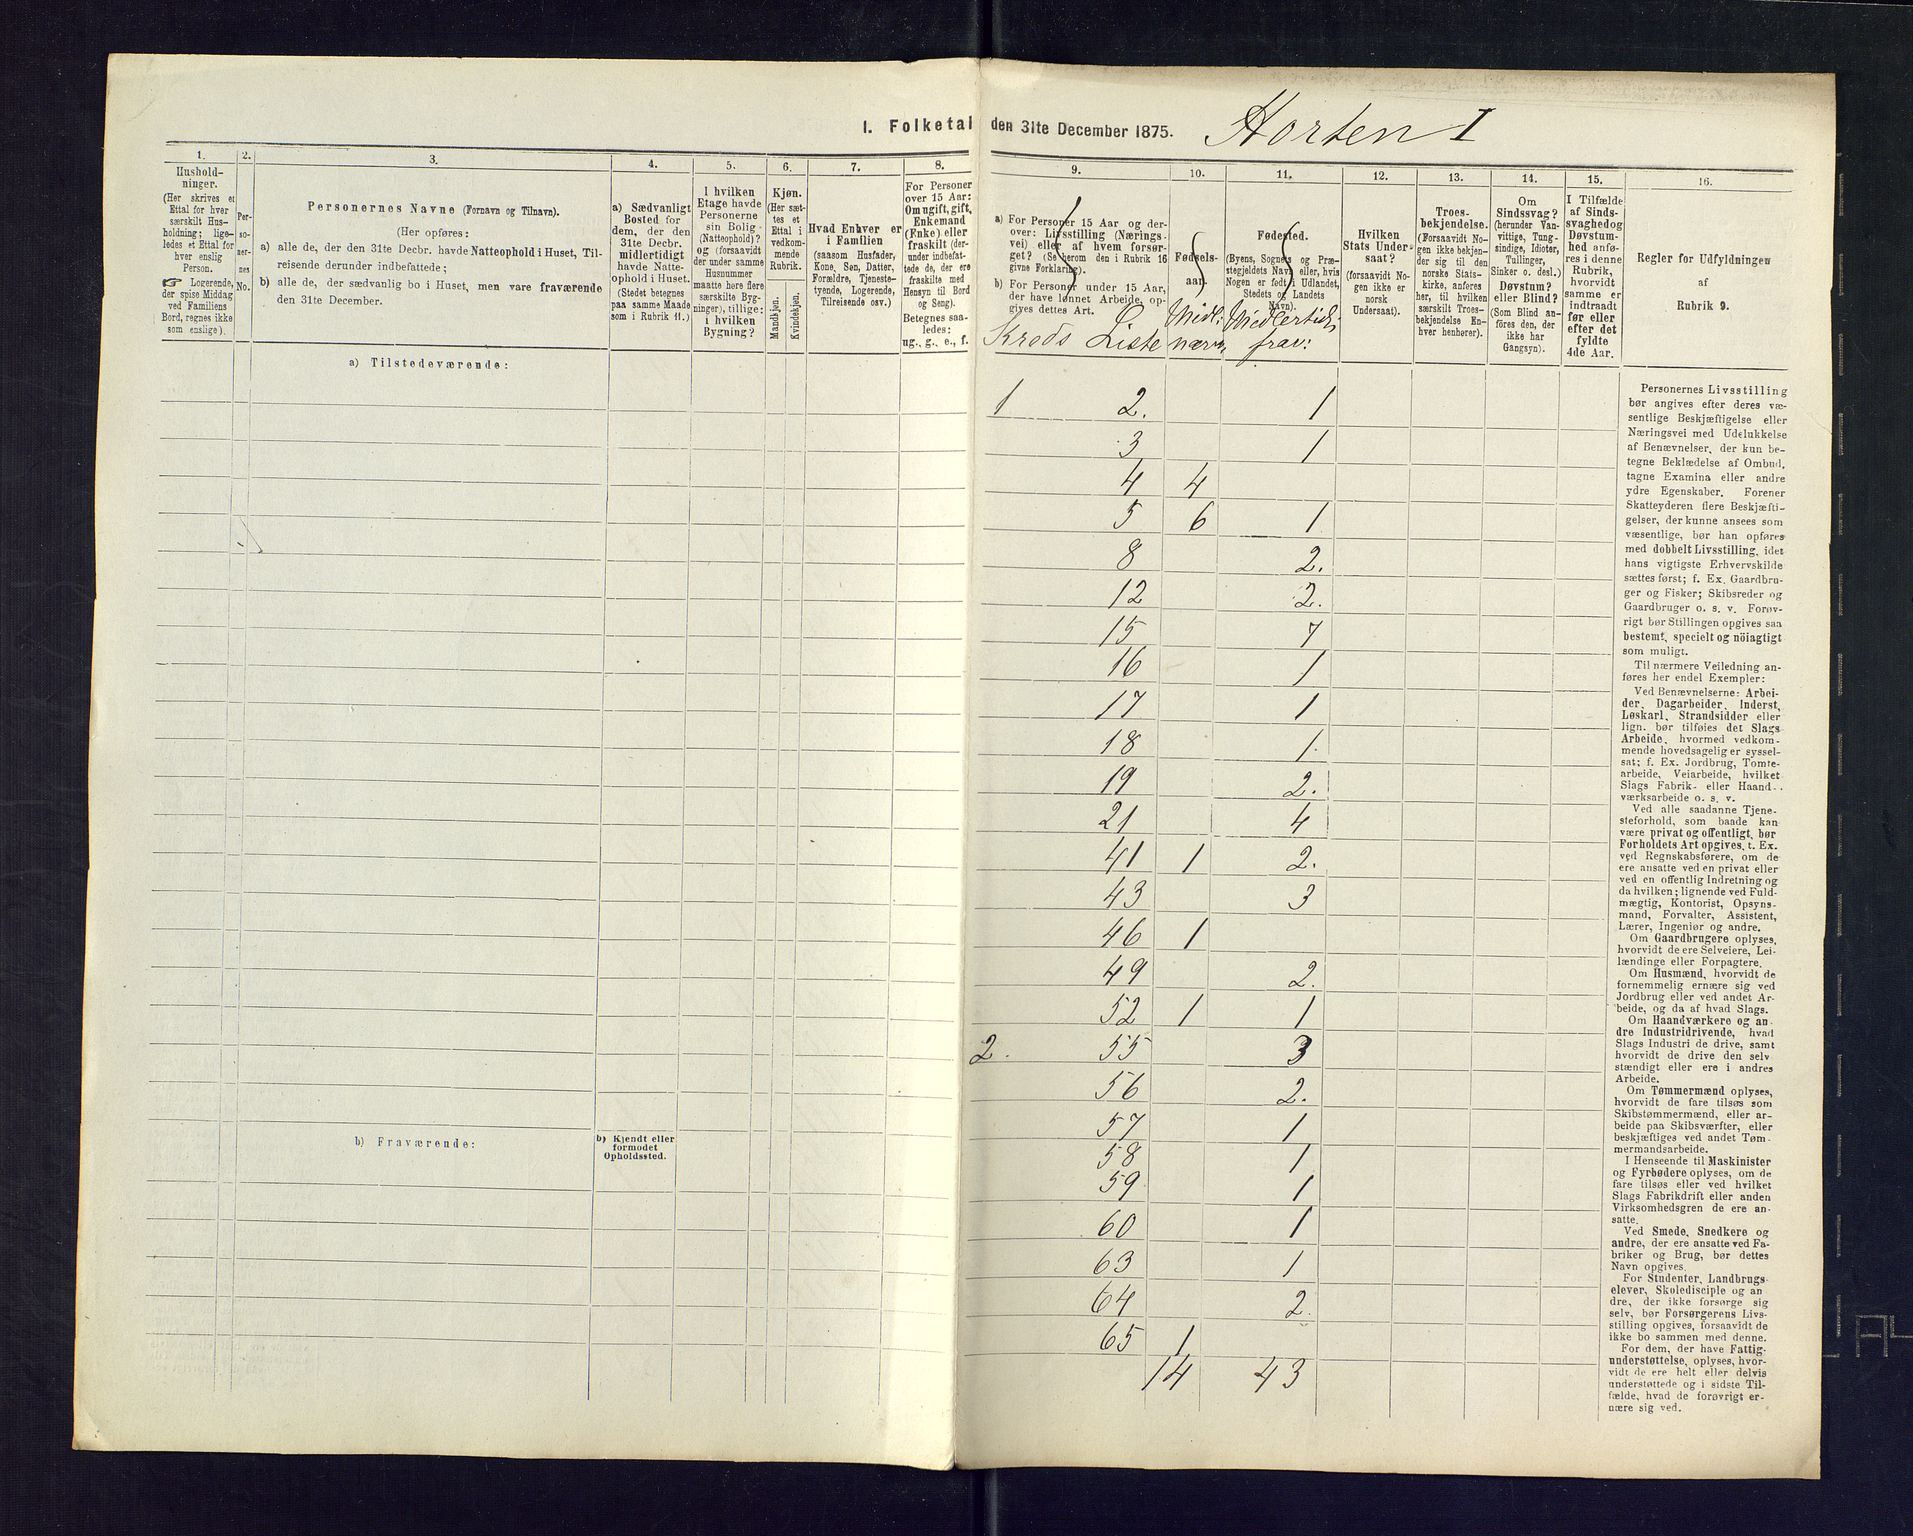 I. Folketal den 31te December 1875. Horten I
1.
Hushold-
ninger.
(Her skrives et
Ettal for hver
særskilt Hus-
holdning; lige-
ledes et Ettal for
hver enslig
Person.
☞ Logerende,
der spise Middag
ved Familiens
Bord, regnes ikke
som enslige).
2.
Per-
so-
ner-
nes
No.
3.
Personernes Navne (Fornavn og Tilnavn).
(Her opføres:
a) alle de, der den 31te Decbr. havde Natteophold i Huset, Til-
reisende derunder indbefattede;
b) alle de, der sædvanlig bo i Huset, men vare fraværende
den 31te December.
4.
a) Sædvanligt
Bosted for
dem, der den
31te Decbr.
midlertidigt
havde Natte-
ophold i Huset.
(Stedet betegnes
paa samme Maade
som i Rubrik 11.)
5.
I hvilken
Etage havde
Personerne
sin Bolig
(Natteophold)?
og (forsaavidt
der under samme
Husnummer
maatte høre flere
særskilte Byg-
ninger), tillige:
i hvilken
Bygning?
6.
Kjøn.
(Her sæt-
tes et
Ettal i
vedkom-
mende
Rubrik.
Mandkjøn.
Kvindekjøn.
7.
Hvad Enhver er
i Familien
(saasom Husfader,
Kone, Søn, Datter,
Forældre, Tjeneste-
tyende, Logerende,
Tilreisende osv.)
8.
For Personer
over 15 Aar:
Om ugift, gift,
Enkemand
(Enke) eller
fraskilt (der-
under indbefat-
tede de, der ere
fraskilte med
Hensyn til Bord
og Seng).
Betegnes saa-
ledes:
ug., g., e., f.
9.
a) For Personer 15 Aar og der-
over: Livsstilling (Nærings-
vei) eller af hvem forsør-
get? (Se herom den i Rubrik 16
givne Forklaring).
b) For Personer under 15 Aar,
der have lønnet Arbeide, op-
gives dettes Art.
Kreds Liste
10.
Fødsels-
aar.
Midl:
nærv.
11.
Fødested.
(Byens, Sognets og Præ-
stegjeldets Navn, eller, hvis
Nogen er født i Udlandet,
Stedets og Landets
Navn).
Midlertidi:
frav:
12.
Hvilken
Stats Under-
saat?
(forsaavidt No-
gen ikke er
norsk
Undersaat).
13.
Troes-
bekjendelse.
(Forsaavidt No-
gen ikke bekjen-
der sig til den
norske Stats-
kirke, anføres
her, til hvilken
særskilt Troes-
bekjendelse En-
hver henhører).
14.
Om
Sindssvag?
(herunder Van-
vittige, Tung-
sindige, Idioter,
Tullinger,
Sinker o. desl.)
Døvstum?
eller Blind?
(Som Blind an-
føres den, der
ikke har
Gangsyn).
15.
I Tilfælde
af Sinds-
svaghed og
Døvstum-
hed anfø-
res i denne
Rubrik,
hvorvidt
samme er
indtraadt
før eller
efter det
fyldte
4de Aar.
16.
Regler for Udfyldningen
af
Rubrik 9.
a) Tilstedeværende:
1 2. 1
3 1
4 4
5 6 1
8 2.
12 2.
15 7
16 1
17 1
18 1.
19 2.
21 4
41 1 2.
43 3
46 1
49 2.
52 1 1
2. 55 3
56 2.
57 1
58 1
59 1
60 1
63 1
64 2.
65 1
14 43
b) Fraværende:
b) Kjendt eller
formodet
Opholdssted.
Personernes Livsstilling
bør angives efter deres væ-
sentlige Beskjæftigelse eller
Næringsvei med Udelukkelse
af Benævnelser, der kun be-
tegne Beklædelse af Ombud,
tagne Examina eller andre
ydre Egenskaber. Forener
Skatteyderen flere Beskjæfti-
gelser, der kunne ansees som
væsentlige, bør han opføres
med dobbelt Livsstilling, idet
hans vigtigste Erhvervskilde
sættes først; f. Ex. Gaardbru-
ger og Fisker; Skibsreder og
Gaardbruger o. s. v. Forøv-
rigt bør Stillingen opgives saa
bestemt, specielt og nöiagtigt
som muligt.
Til nærmere Veiledning an-
føres her endel Exempler:
Ved Benævnelserne: Arbei-
der, Dagarbeider, Inderst,
Løskarl, Strandsidder eller
lign. bør tilføies det Slags
Arbeide, hvormed vedkom-
mende hovedsagelig er syssel-
sat; f. Ex. Jordbrug, Tomte-
arbeide, Veiarbeide, hvilket
Slags Fabrik- eller Haand-
værksarbeide o. s. v.
Ved alle saadanne Tjene-
steforhold, som baade kan
være privat og offentligt, bør
Forholdets Art opgives, t. Ex.
ved Regnskabsførere, om de
ere ansatte ved en privat eller
ved en offentlig Indretning og
da hvilken; lignende ved Fuld-
mægtig, Kontorist, Opsyns-
mand, Forvalter, Assistent,
Lærer, Ingeniør og andre.
Om Gaardbrugere oplyses,
hvorvidt de ere Selveiere, Lei-
lændinge eller Forpagtere.
Om Husmænd, hvorvidt de
fornemmelig ernære sig ved
Jordbrug eller ved andet Ar-
beide, og da af hvad Slags.
Om Haandværkere og an-
dre Industridrivende, hvad
Slags Industri de drive, samt
hvorvidt de drive den selv-
stændigt eller ere i andres
Arbeide.
Om Tømmermænd oplyses,
hvorvidt de fare tilsøs som
Skibstømmermænd, eller ar-
beide paa Skibsværfter, eller
beskjæftiges ved andet Tøm-
mermandsarbeide.
I Henseende til Maskinister
og Fyrbødere oplyses, om de
fare tilsøs eller ved hvilket
Slags Fabrikdrift eller anden
Virksomhedsgren de ere an-
satte.
Ved Smede, Snedkere og
andre, der ere ansatte ved Fa-
briker og Brug, bør dettes
Navn opgives.
For Studenter, Landbrugs-
elever, Skoledisciple og an-
dre, der ikke forsørge sig
selv, bør Forsørgerens Livs-
stilling opgives, forsaavidt de
ikke bo sammen med denne.
For dem, der have Fattig-
understøttelse, oplyses, hvor-
vidt de ere helt eller delvis
understøttede og i sidste Til-
fælde, hvad de forøvrigt er-
nære sig ved.